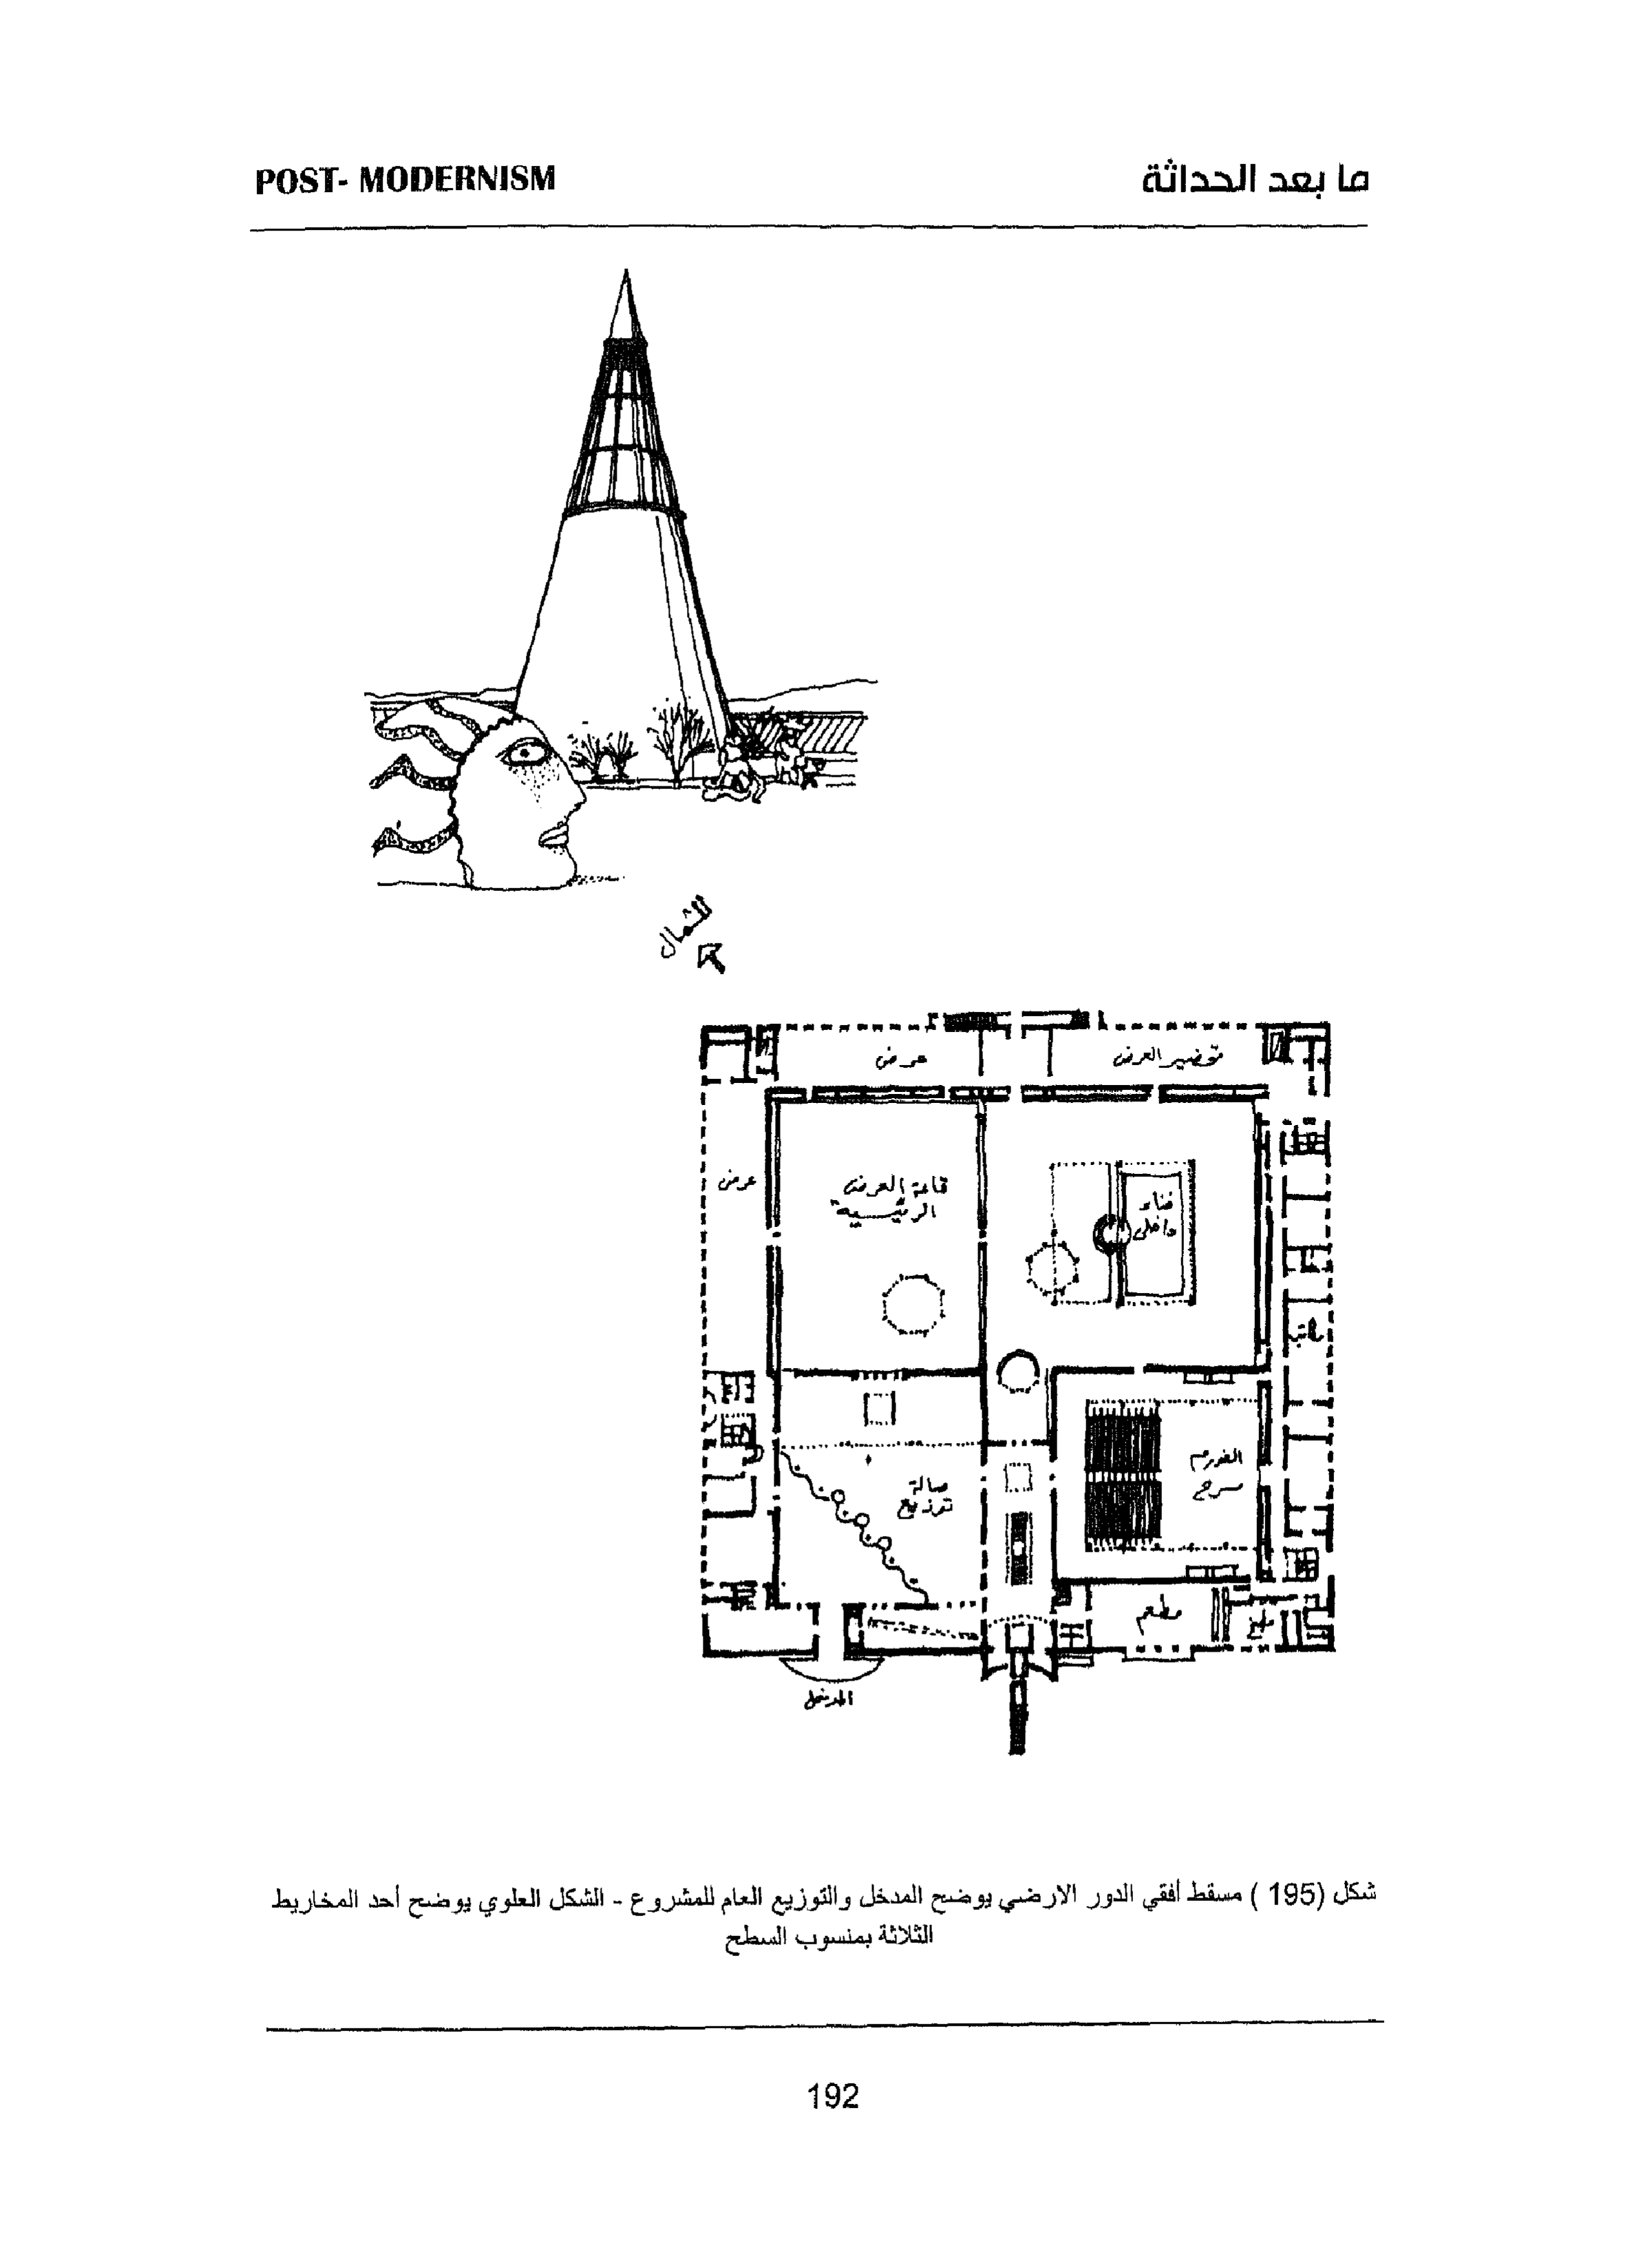 POST- MODERNISM
ما بعد الحداثة
الشمال
عرض
تحضير العرض
عرض
قاعة العرض
الرئيسية
فناء
داخلى
مكاتب
الفورم
مسرح
صالة
توزيع
مطعم
مطبخ
المدخل
شكل (195 ) مسقط أفقي الدور الارضي يوضح المدخل والتوزيع العام للمشروع - الشكل العلوي يوضح أحد المخاريط
الثلاثة بمنسوب السطح
192